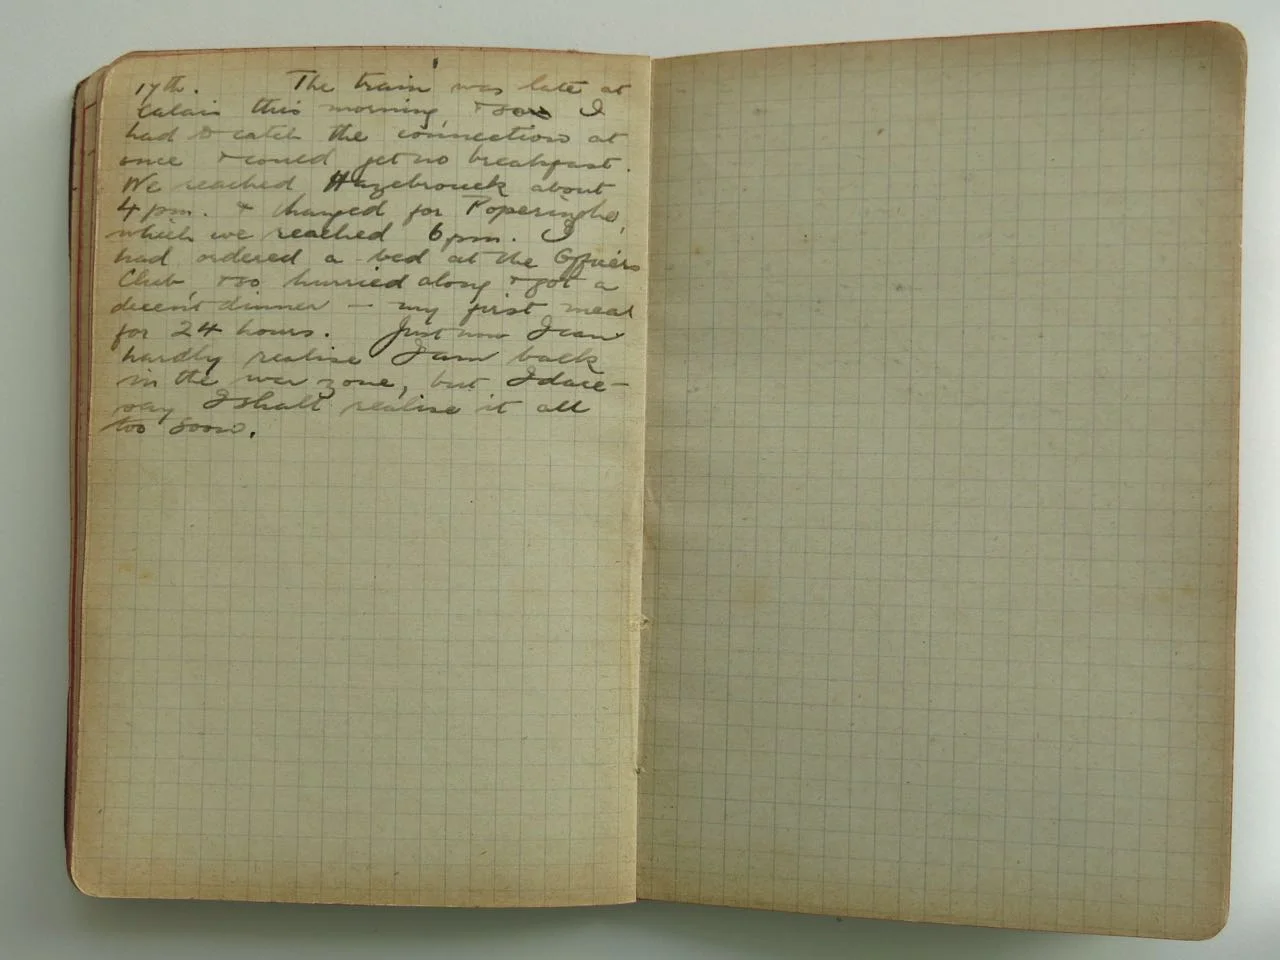 17th. The train was late at
Calais this morning & so I
had to catch the connection at
once & could get no breakfast.
We reached Hazebrouck about
4 pm. & changed for Poperinghe,
which we reached 6 pm. I
had ordered a bed at the Officers
Club & so hurried along & got a
decent dinner — my first meal
for 24 hours. Just now I can
hardly realise I am back
in the war zone, but I dare-
say I shall realise it all
too soon.